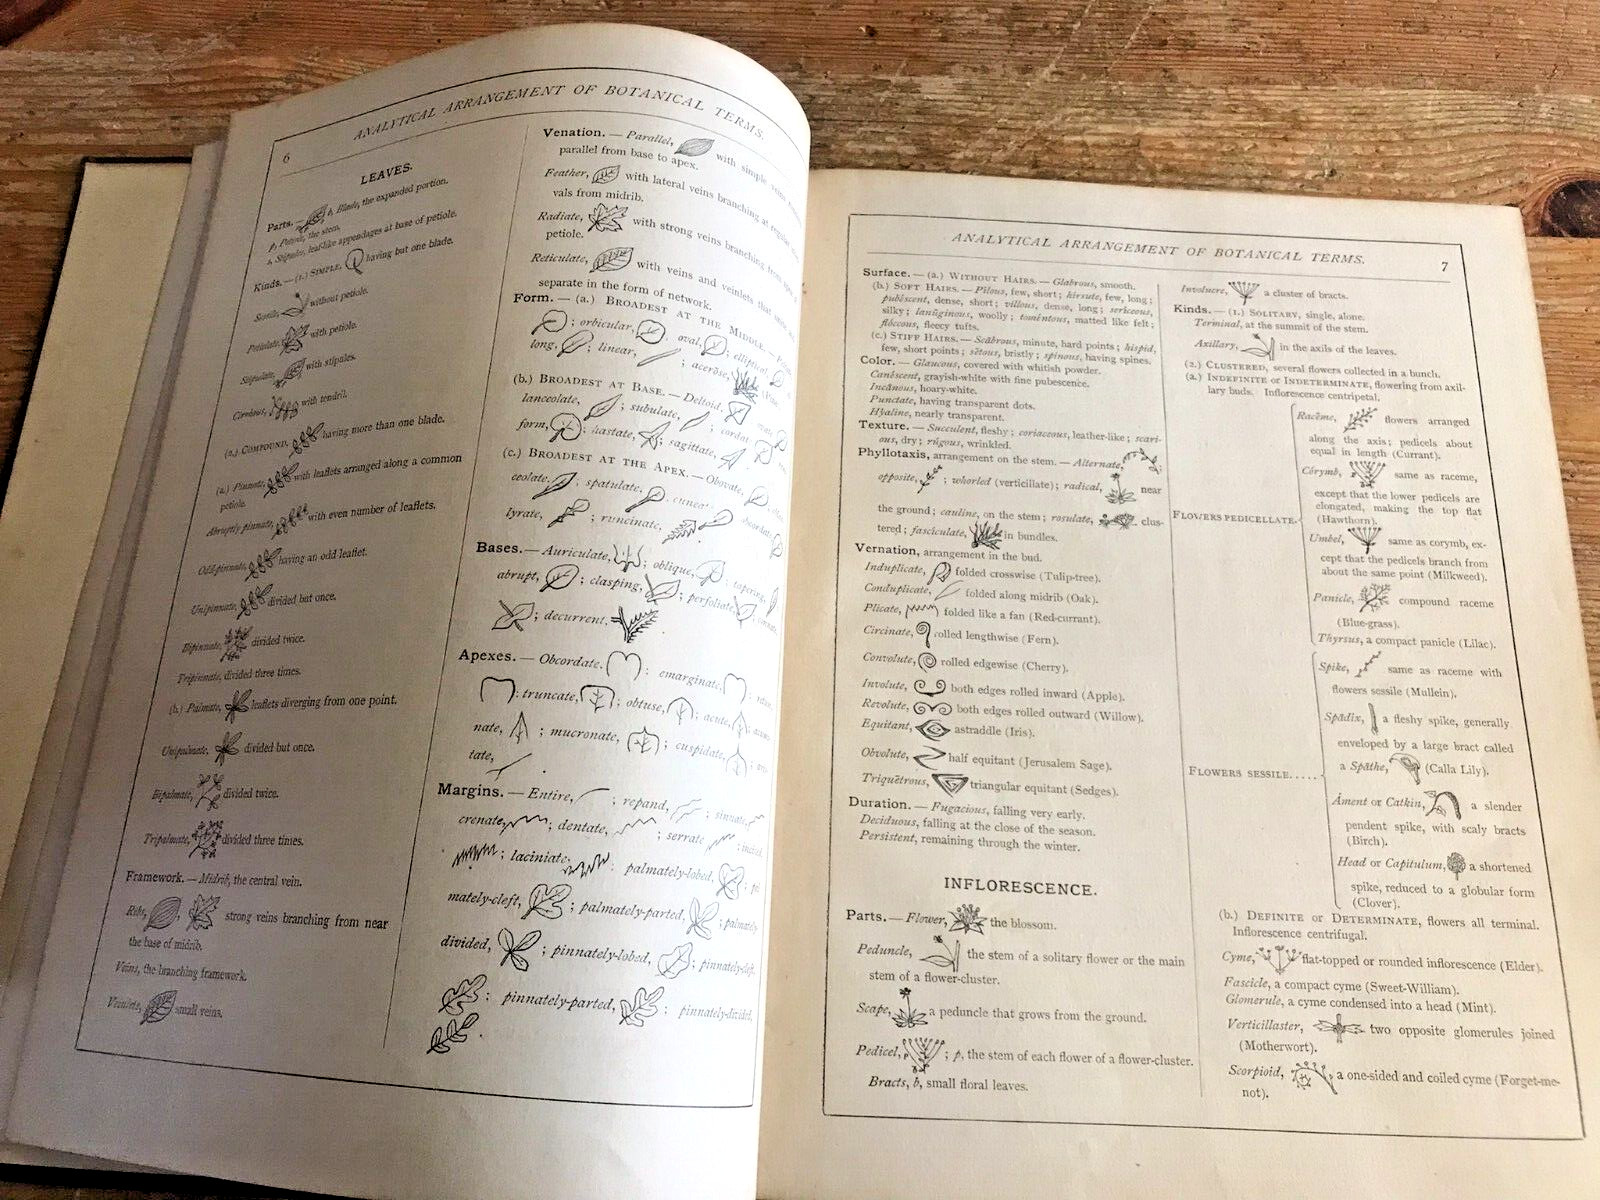 6
ANALYTICAL ARRANGEMENT OF BOTANICAL TERMS.
LEAVES.
Parts.— b, Blade, the expanded portion.
p, Petiole, the stem.
s, Stipules, leaf-like appendages at base of petiole.
Kinds.—(1.) SIMPLE, having but one blade.
Sessile, without petiole.
Petiolate, with petiole.
Stipulate, with stipules.
Cirrhous, with tendril.
(2.) COMPOUND, having more than one blade.
(a.) Pinnate, with leaflets arranged along a common
petiole.
Abruptly pinnate, with even number of leaflets.
Odd-pinnate, having an odd leaflet.
Unipinnate, divided but once.
Bipinnate, divided twice.
Tripinnate, divided three times.
(b.) Palmate, leaflets diverging from one point.
Unipalmate, divided but once.
Bipalmate, divided twice.
Tripalmate, divided three times.
Framework.—Midrib, the central vein.
Ribs, strong veins branching from near
the base of midrib.
Veins, the branching framework.
Veinlets, small veins.
Venation.—Parallel, with simple veins
parallel from base to apex.
Feather, with lateral veins branching at regular
vals from midrib.
Radiate, with strong veins branching from
petiole.
Reticulate, with veins and veinlets that
separate in the form of network.
Form.—(a.) BROADEST AT THE MIDDLE.—
; orbicular, oval, ; elliptical,
long, ; linear, ; acerose,
(b.) BROADEST AT BASE.—Deltoid,
lanceolate, ; subulate, ; cordate
form, ; hastate, ; sagittate,
(c.) BROADEST AT THE APEX.—Obovate,
ceolate, ; spatulate, ; cuneate
lyrate, ; runcinate,
Bases.—Auriculate, ; oblique, ; tapering,
abrupt, ; clasping, ; perfoliate,
; decurrent,
Apexes.—Obcordate, ; emarginate, ; retuse
; truncate, ; obtuse, ; acute,
nate, ; mucronate, ; cuspidate,
tate,
Margins.—Entire, ; repand, ; sinuate,
crenate, ; dentate, ; serrate ; incised,
; laciniate, ; palmately-lobed,
mately-cleft, ; palmately-parted, ; palmately
divided, ; pinnately-lobed, ; pinnately-cleft,
; pinnately-parted, ; pinnately-divided,
ANALYTICAL ARRANGEMENT OF BOTANICAL TERMS.
7
Surface.—(a.) WITHOUT HAIRS.—Glabrous, smooth.
(b.) SOFT HAIRS.—Pilous, few, short; hirsute, few, long;
pubescent, dense, short; villous, dense, long; sericeous,
silky; lanūginous, woolly; tomēntous, matted like felt;
flōccous, fleecy tufts.
(c.) STIFF HAIRS.—Scābrous, minute, hard points; hispid,
few, short points; sētous, bristly; spinous, having spines.
Color.—Glaucous, covered with whitish powder.
Canēscent, grayish-white with fine pubescence.
Incānous, hoary-white.
Punctate, having transparent dots.
Hyaline, nearly transparent.
Texture.—Succulent, fleshy; coriaceous, leather-like; scari-
ous, dry; rūgous, wrinkled.
Phyllotaxis, arrangement on the stem.—Alternate, ;
opposite, ; whorled (verticillate); radical, near
the ground; cauline, on the stem; rosulate, clus-
tered; fasciculate, in bundles.
Vernation, arrangement in the bud.
Induplicate, folded crosswise (Tulip-tree).
Conduplicate, folded along midrib (Oak).
Plicate, folded like a fan (Red-currant).
Circinate, rolled lengthwise (Fern).
Convolute, rolled edgewise (Cherry).
Involute, both edges rolled inward (Apple).
Revolute, both edges rolled outward (Willow).
Equitant, astraddle (Iris).
Obvolute, half equitant (Jerusalem Sage).
Triquētrous, triangular equitant (Sedges).
Duration.—Fugacious, falling very early.
Deciduous, falling at the close of the season.
Persistent, remaining through the winter.
INFLORESCENCE.
Parts.—Flower, the blossom.
Peduncle, the stem of a solitary flower or the main
stem of a flower-cluster.
Scape, a peduncle that grows from the ground.
Pedicel, ; p, the stem of each flower of a flower-cluster.
Bracts, b, small floral leaves.
Involucre, a cluster of bracts.
Kinds.—(1.) SOLITARY, single, alone.
Terminal, at the summit of the stem.
Axillary, in the axils of the leaves.
(2.) CLUSTERED, several flowers collected in a bunch.
(a.) INDEFINITE or INDETERMINATE, flowering from axil-
lary buds. Inflorescence centripetal.
FLOWERS PEDICELLATE.
Racēme, flowers arranged
along the axis; pedicels about
equal in length (Currant).
Córymb, same as raceme,
except that the lower pedicels are
elongated, making the top flat
(Hawthorn).
Umbel, same as corymb, ex-
cept that the pedicels branch from
about the same point (Milkweed).
Panicle, compound raceme
(Blue-grass).
Thyrsus, a compact panicle (Lilac).
FLOWERS SESSILE.....
Spike, same as raceme with
flowers sessile (Mullein).
Spādix, a fleshy spike, generally
enveloped by a large bract called
a Spāthe, (Calla Lily).
Áment or Catkin, a slender
pendent spike, with scaly bracts
(Birch).
Head or Capitulum, a shortened
spike, reduced to a globular form
(Clover).
(b.) DEFINITE or DETERMINATE, flowers all terminal.
Inflorescence centrifugal.
Cyme, flat-topped or rounded inflorescence (Elder).
Fascicle, a compact cyme (Sweet-William).
Glomerule, a cyme condensed into a head (Mint).
Verticillaster, two opposite glomerules joined
(Motherwort).
Scorpioid, a one-sided and coiled cyme (Forget-me-
not).